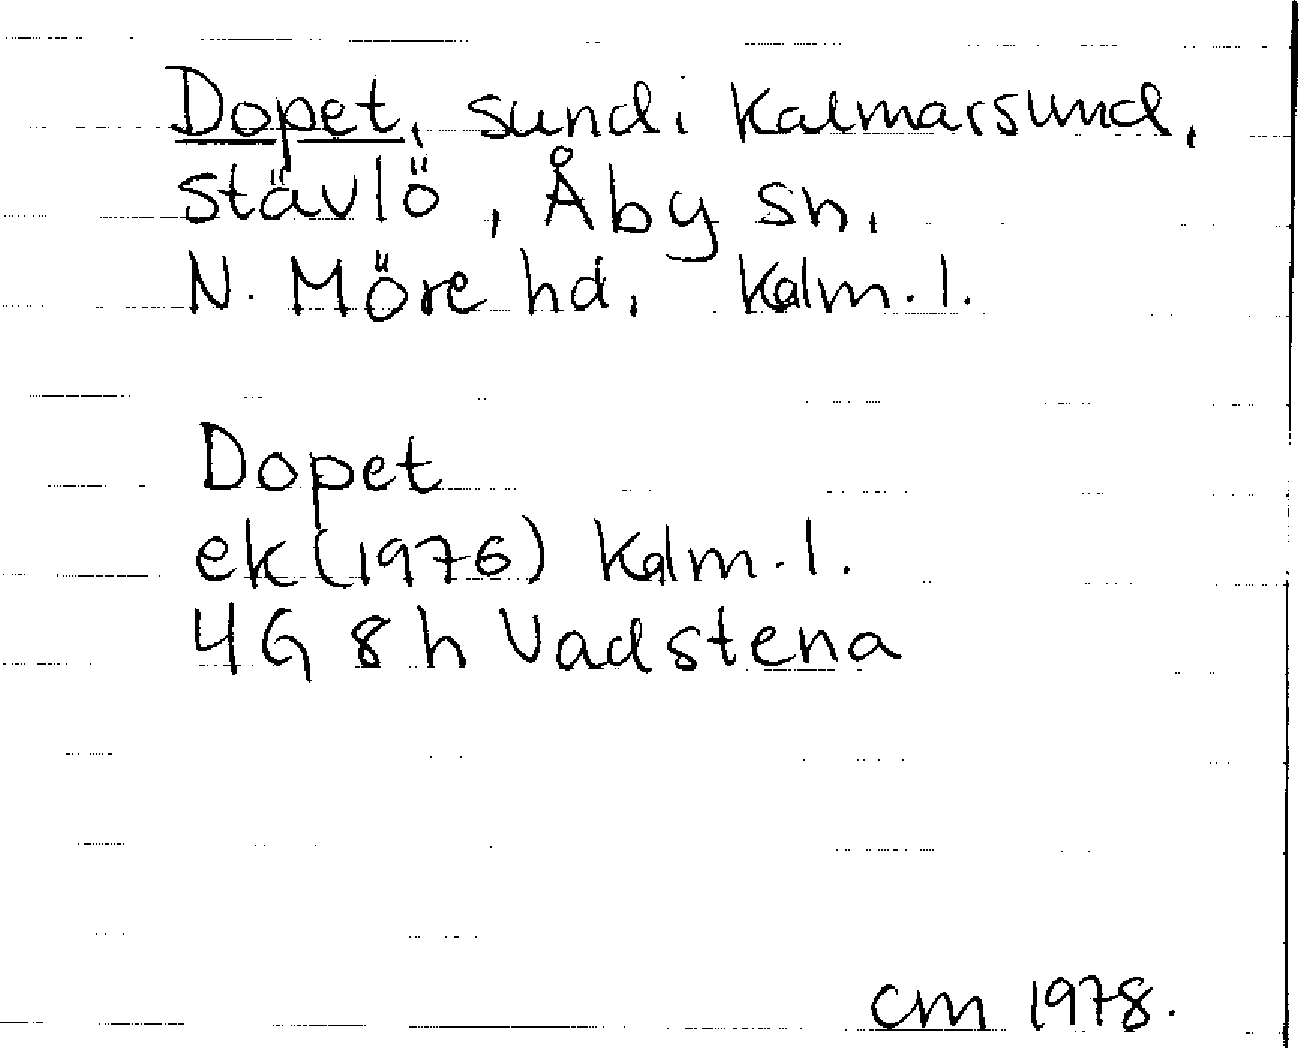 Dopet, sund i Kalmarsund,
Stävlö, Åby sn,
N. Möre hd, Kalm. l.
Dopet
ek (1976) Kalm. l.
4G 8h Vadstena
CM 1978.